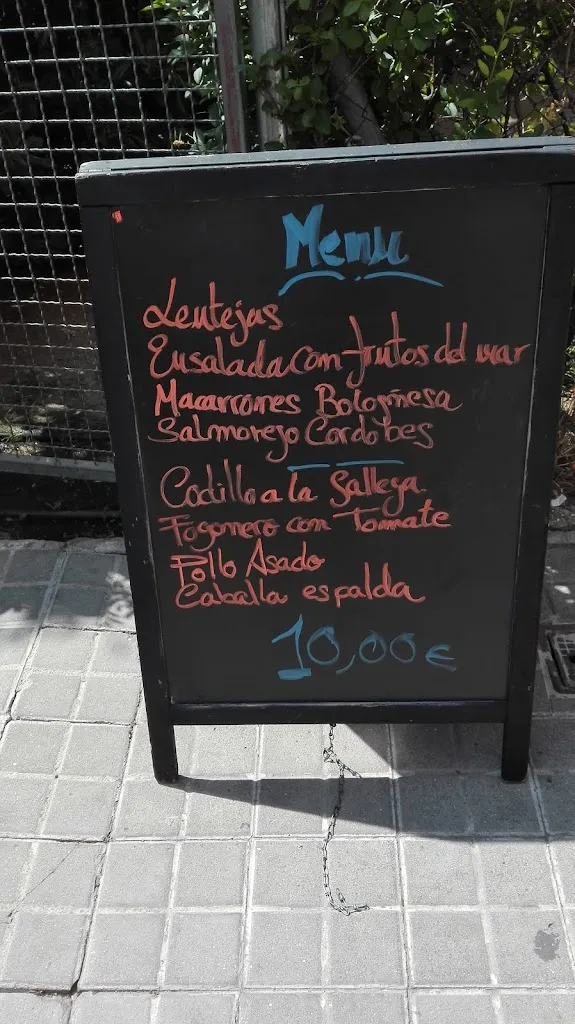 Menu
Lentejas
Ensalada con frutos del mar
Macarrones Bologñesa
Salmorejo Cordobes
Codillo a la Gallega
Fogonero con Tomate
Pollo Asado
Caballa espalda
10,00€